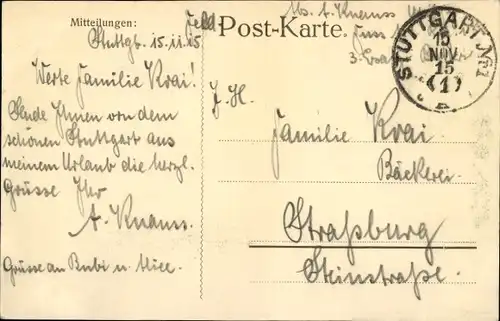 Mitteilungen:
Post-Karte.
Abs. A. Knauss
Stuttgart, 15.11.15
STUTTGART Nr. 1
15
NOV
15
(1)
Werte Familie Krai!
Sende Ihnen von dem
schönen Stuttgart aus
meinem Urlaub die herzl.
Grüsse Ihr
A. Knauss.
Grüsse an Bubi u.
J. H.
Familie Krai.
Bäckerei.
Straßburg
Steinstraße.